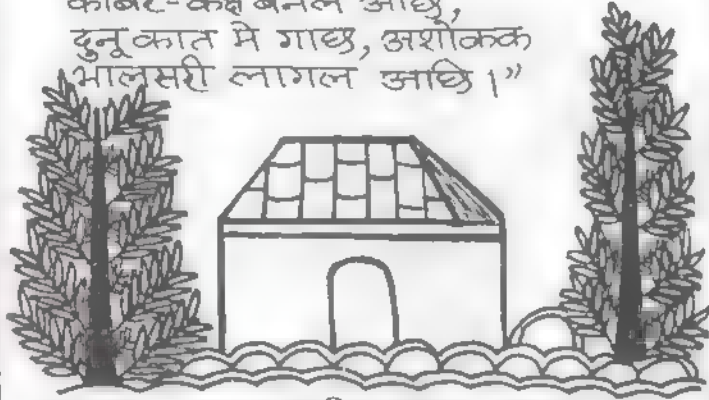 कोबर-कक्ष बनल आछि,
दुनू कात मे गाछ, अशोकक
भालसरी लागल आछि ।”